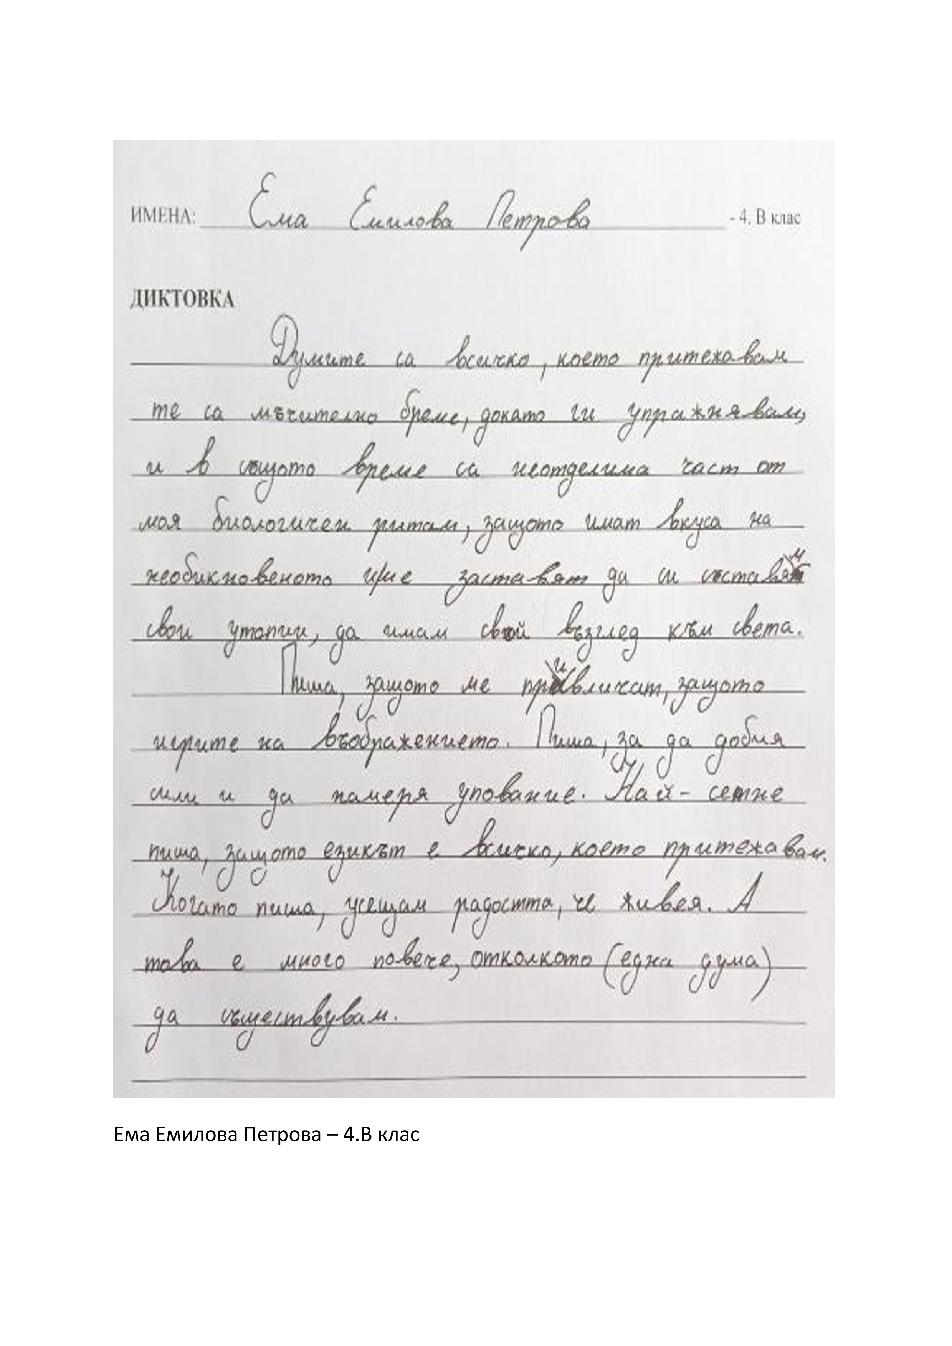 ИМЕНА: Ема Емилова Петрова - 4. В клас
ДИКТОВКА
Думите са всичко, което притежавам
те са мъчително бреме, докато ги упражнявам,
и в същото време са неотделима част от
моя биологичен ритам, защото имат вкуса на
необикновеното и ме заставят да си съставям
свои утопии, да имам свой възглед към света.
Пиша, защото ме привличат, защото
игрите на въображението. Пиша, за да добия
сили и да намеря упование. Най-сетне
пиша, защото езикът е всичко, което притежавам.
Когато пиша, усещам радостта, че живея. А
това е много повече, отколкото (една дума)
да съществувам.
Ема Емилова Петрова – 4.В клас